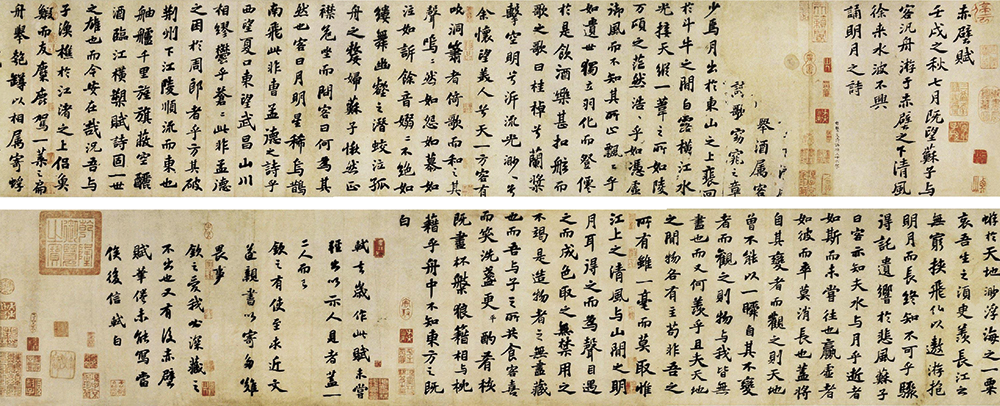 赤壁賦
壬戌之秋七月既望蘇子与
客泛舟游于赤壁之下清風
徐来水波不興
誦明月之詩
舉酒属客
歌窈窕之章
少焉月出於東山之上裵回
於斗牛之間白露橫江水
光接天縱一葦之所如陵
万頃之茫然浩〻乎如憑虛
御風而不知其所止飄〻乎
如遺世獨立羽化而登僊
於是飲酒樂甚扣舷而
歌之歌曰桂棹兮蘭槳
擊空明兮泝流光渺〻兮
余懷望美人兮天一方客有
吹洞簫者倚歌而和之其
聲嗚〻然如怨如慕如
泣如訴餘音嫋〻不絕如
縷舞幽壑之潛蛟泣孤
舟之嫠婦蘇子愀然正
襟危坐而問客曰何為其
然也客曰月明星稀烏鵲
南飛此非曹孟德之詩乎
西望夏口東望武昌山川
相繆鬱乎蒼〻此非孟德
之困於周郎者乎方其破
荊州下江陵順流而東也
舳艫千里旌旗蔽空釃
酒臨江橫槊賦詩固一世
之雄也而今安在哉況吾与
子漁樵於江渚之上侶魚
鰕而友麋鹿駕一葉之扁
舟舉匏罇以相属寄蜉
蝣於天地渺浮海之一粟
哀吾生之須臾羨長江之
無窮挾飛仙以遨游抱
明月而長終知不可乎驟
得託遺響於悲風蘇子
曰客亦知夫水与月乎逝者
如斯而未嘗往也贏虛者
如彼而卒莫消長也蓋將
自其變者而觀之則天地
曾不能以一瞬自其不變
者而觀之則物与我皆無
盡也而又何羨乎且夫天地
之間物各有主苟非吾之
所有雖一毫而莫取惟
江上之清風与山間之明
月耳得之而為聲目遇
之而成色取之無禁用之
不竭是造物者之無盡藏
也而吾与子之所共食客喜
而笑洗盞更酌肴核
既盡杯盤狼藉相与枕
藉乎舟中不知東方之既
白
軾去歲作此賦未嘗
輕出以示人見者蓋一
二人而已
欽之有使至求近文
遂親書以寄多難
畏事
欽之愛我必深藏之
不出也又有後赤壁
賦筆倦未能寫當
俟後信軾白